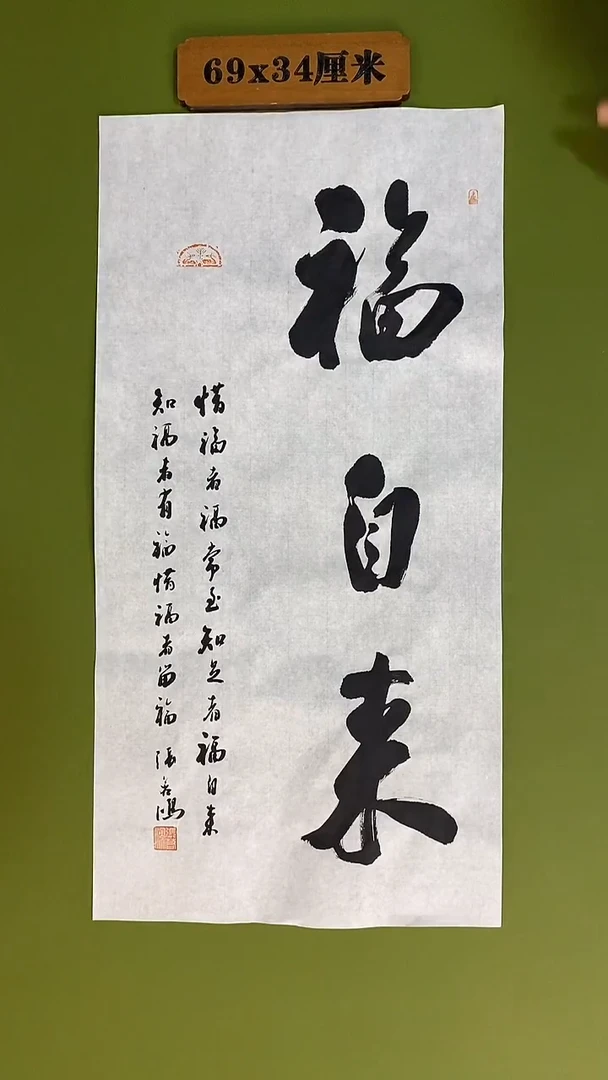 69x34厘米
福自来
惜福者福常至知足者福自来
知福者有福惜福者留福 張